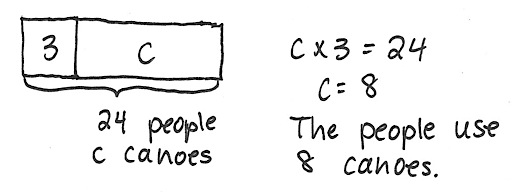 3 C
24 people
c canoes
C x 3 = 24
C = 8
The people use
8 canoes.